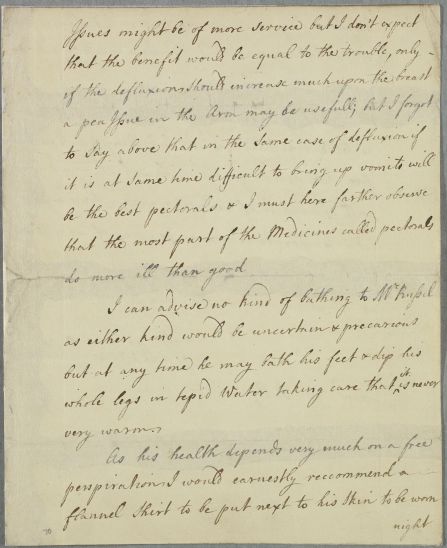 Issues might be of more service but I don't expect
that the benefit would be equal to the trouble, only
if the defluxion should increase much upon the breast
a pea Issue in the Arm may be usefull; but I forgot
to Say above that in the Same case of defluxion if
it is at Same time difficult to bring up vomits will
be the best pectorals & I must here farther observe
that the most part of the Medicines called pectorals
do more ill than good.
I can advise no kind of bathing to Mr Russel
as either kind would be uncertain & precarious
but at any time he may bath his feet & dip his
whole legs in tepid Water taking care that it is never
very warm.
As his health depends very much on a free
perspiration I would earnestly reccommend a
flannel Shirt to be put next to his Skin to be worn
night